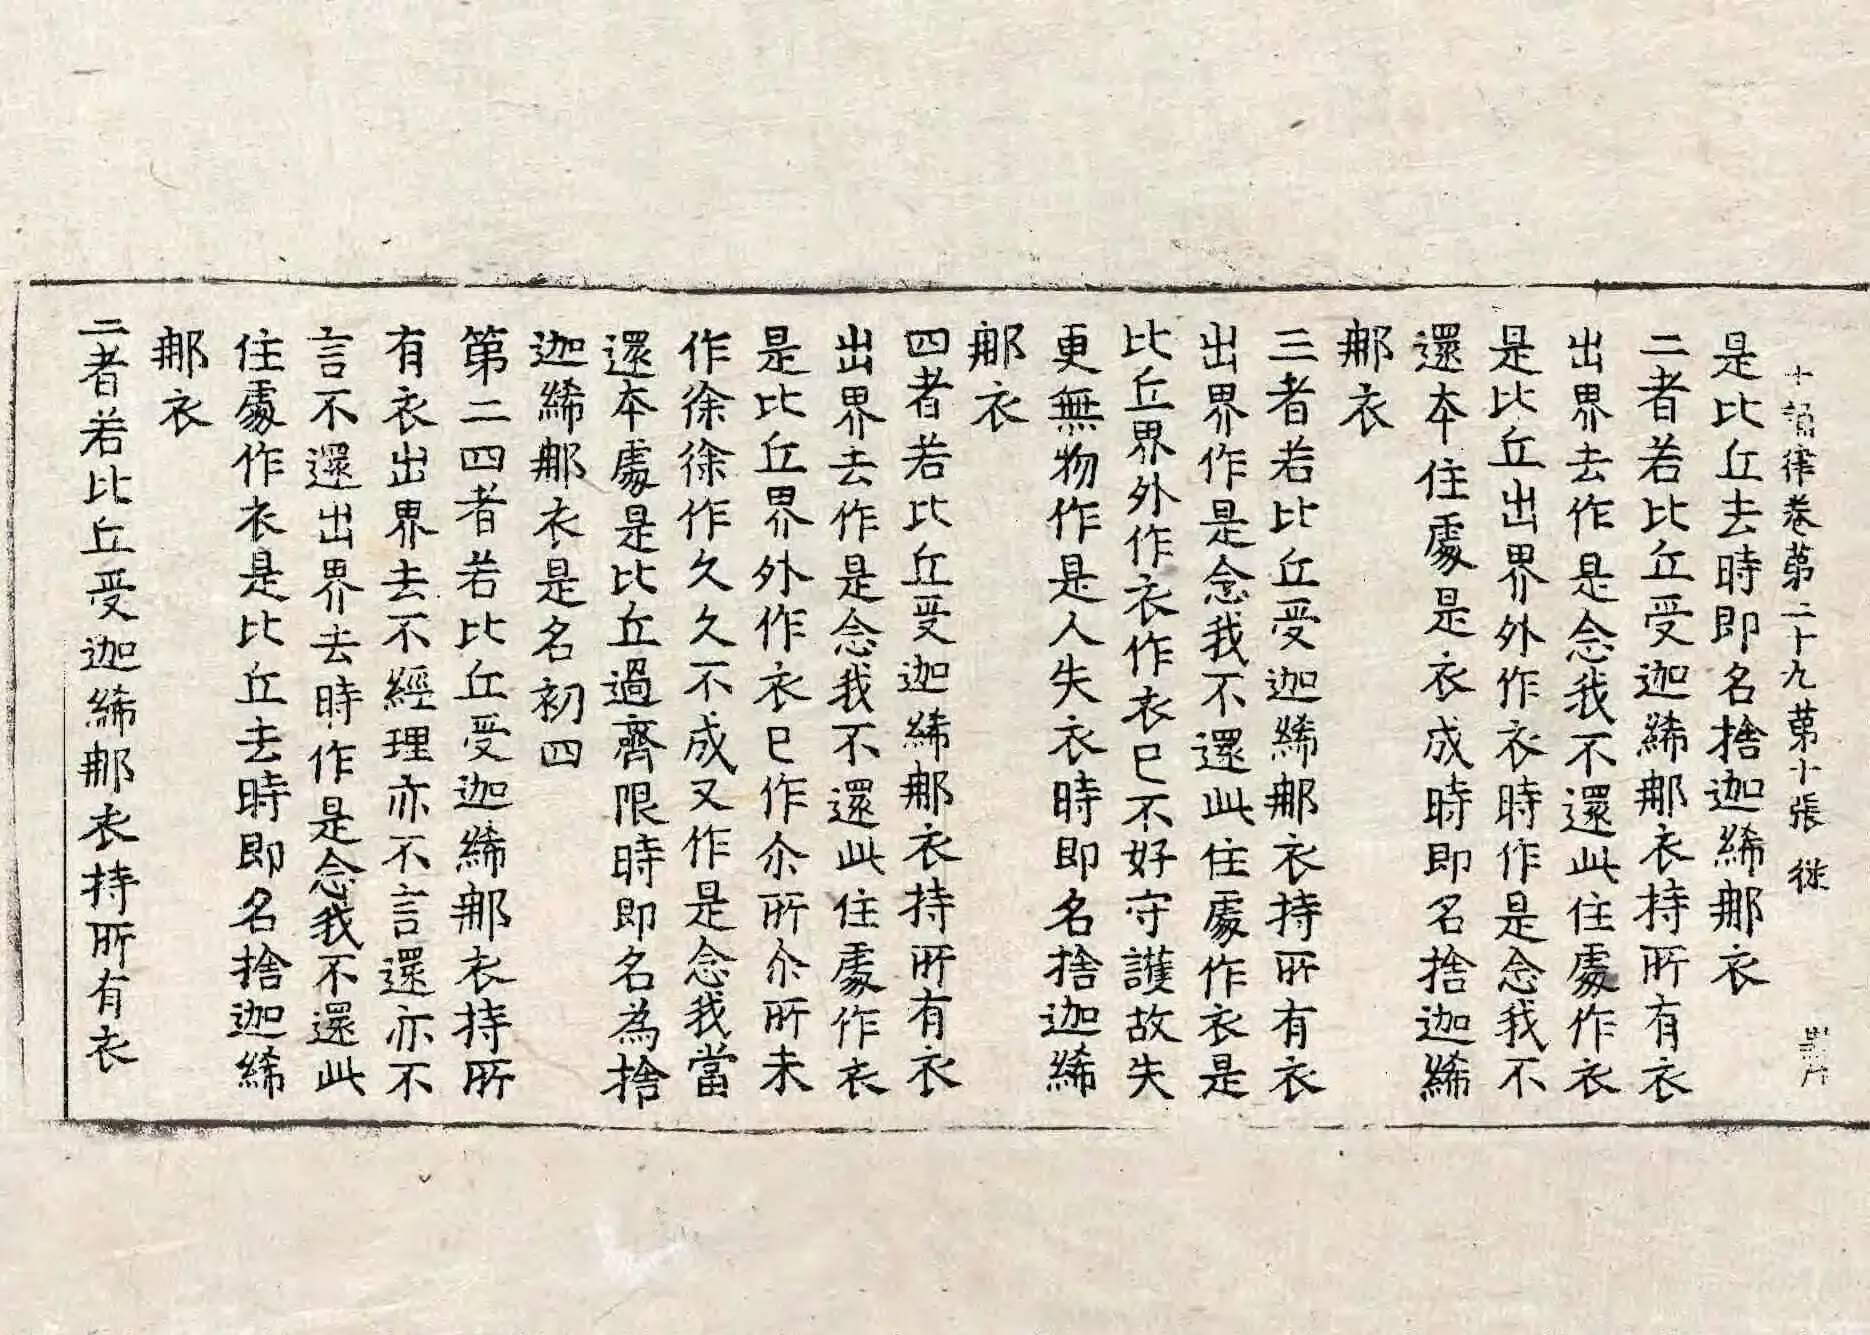 十誦律卷第二十九第十張
是比丘去時即名捨迦絺那衣
二者若比丘受迦絺那衣持所有衣
出界去作是念我不還此住處作衣
是比丘出界外作衣時作是念我不
還本住處是衣成時即名捨迦絺
那衣
三者若比丘受迦絺那衣持所有衣
出界作是念我不還此住處作衣是
比丘界外作衣作衣已不好守護故失
更無物作是人失衣時即名捨迦絺
那衣
四者若比丘受迦絺那衣持所有衣
出界去作是念我不還此住處作衣
是比丘界外作衣已作尒所尒所未
作徐徐作久久不成又作是念我當
還本處是比丘過齊限時即名為捨
迦絺那衣是名初四
第二四者若比丘受迦絺那衣持所
有衣出界去不經理亦不言還亦不
言不還出界去時作是念我不還此
住處作衣是比丘去時即名捨迦絺
那衣
二者若比丘受迦絺那衣持所有衣